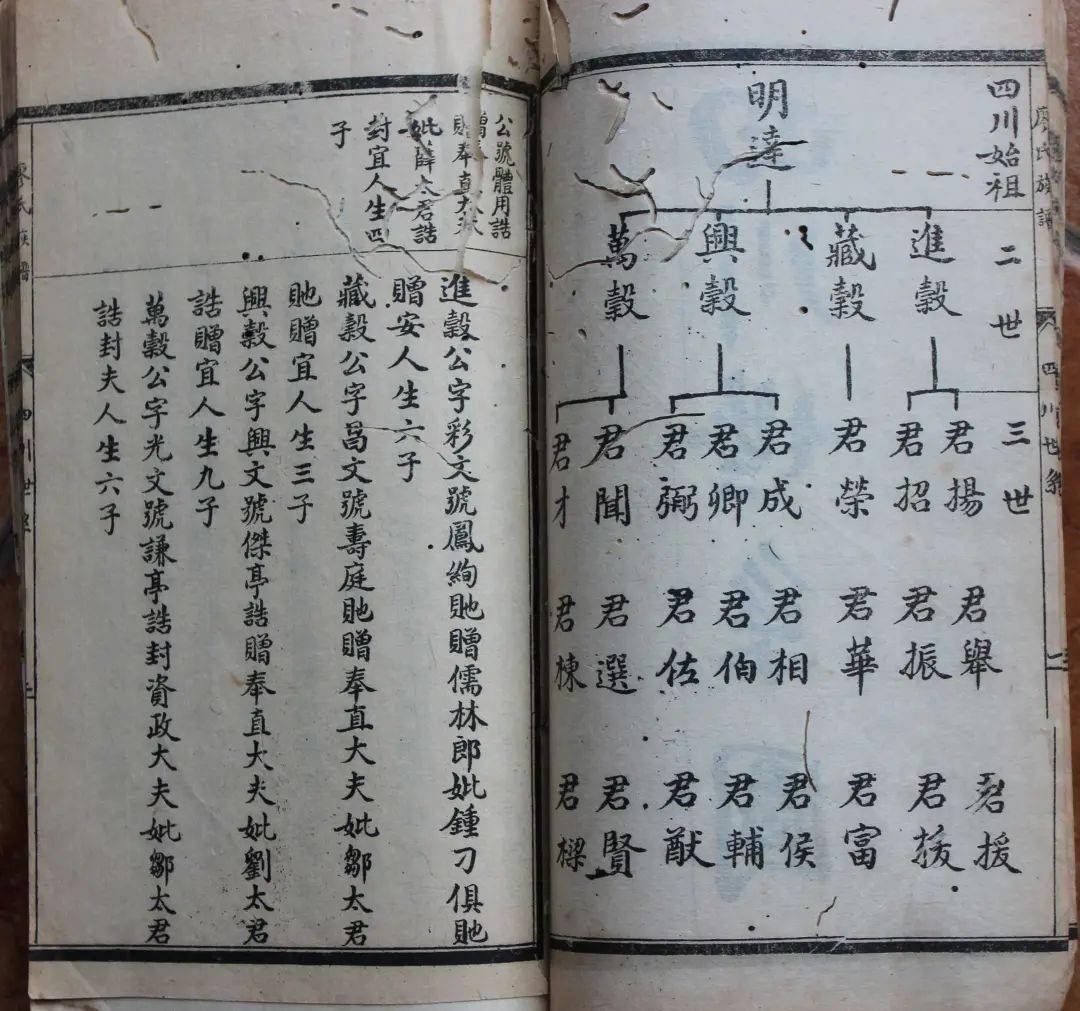 廖氏族譜
四川世系
四川始祖
明達
二世
進穀
藏穀
興穀
萬穀
三世
君揚
君舉
君援
君招
君振
君榮
君華
君富
君成
君相
君侯
君卿
君伯
君輔
君弼
君佐
君猷
君聞
君選
君賢
君才
君棟
君樑
公號體用誥
贈奉直大夫
妣薛太君誥
封宜人生四
子
進穀公字彩文號鳳絢貤贈儒林郎妣鍾刁俱貤
贈安人生六子
藏穀公字昌文號壽庭貤贈奉直大夫妣鄒太君
貤贈宜人生三子
興穀公字興文號傑亭誥贈奉直大夫妣劉太君
誥贈宜人生九子
萬穀公字光文號謙亭誥封資政大夫妣鄒太君
誥封夫人生六子
廖氏族譜
四川世系